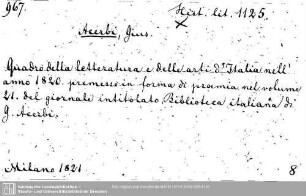 967.
Hist. lit. 1125.
Acerbi, Gius.
Quadro della letteratura e delle arti d'Italia nell'
anno 1820. premesso in forma di proemia nel volume
21. del giornale intitolato Biblioteca italiana di
G. Acerbi.
Milano 1821
8